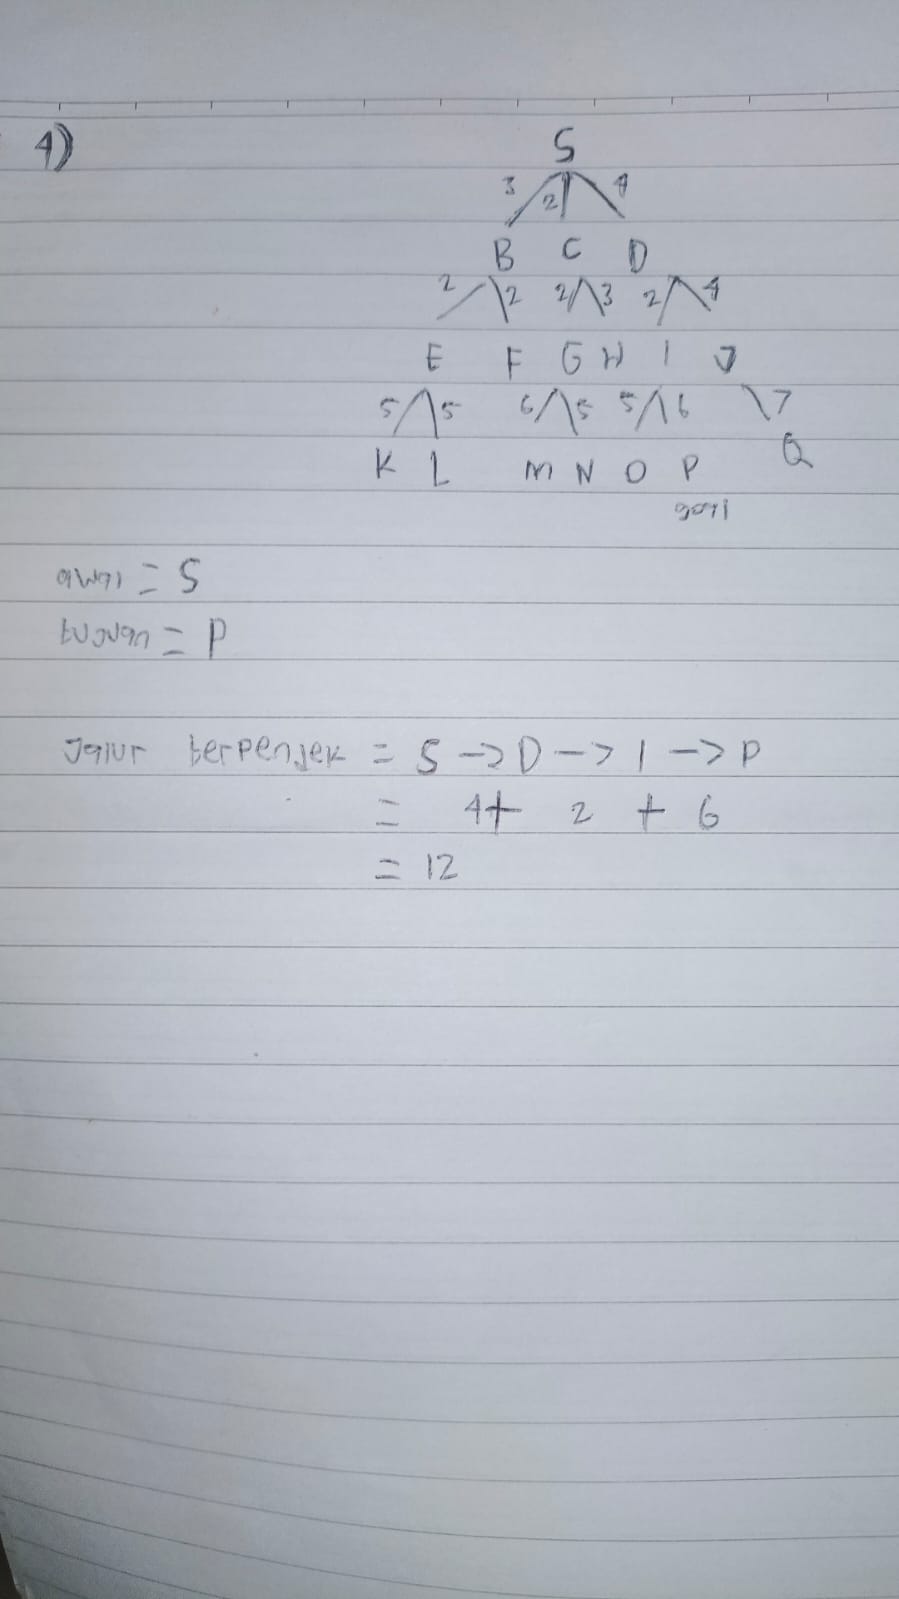 4)
S
3 2 4
B C D
2 2 2 3 2 4
E F G H I J
5 5 6 5 5 6 7
K L M N O P Q
goal
awal = S
tujuan = P
Jalur terpendek = S -> D -> I -> P
= 4 + 2 + 6
= 12